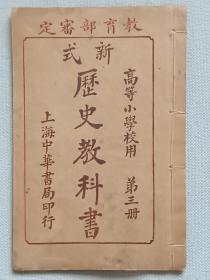 教育部審定
新式
高等小學校用 第三册
歷史教科書
上海中華書局印行